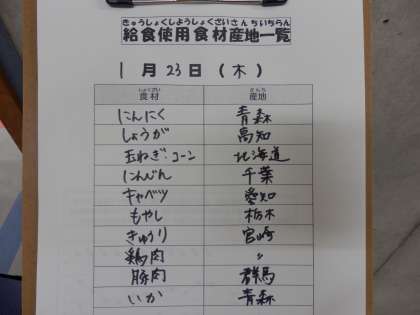 きゅうしょくしようしょくざいさんちいちらん
給食使用食材産地一覧
1月23日(木)
しょくざい さんち
食材 産地
にんにく 青森
しょうが 高知
玉ねぎ・コーン 北海道
にんじん 千葉
キャベツ 愛知
もやし 栃木
きゅうり 宮崎
鶏肉 〃
豚肉 群馬
いか 青森